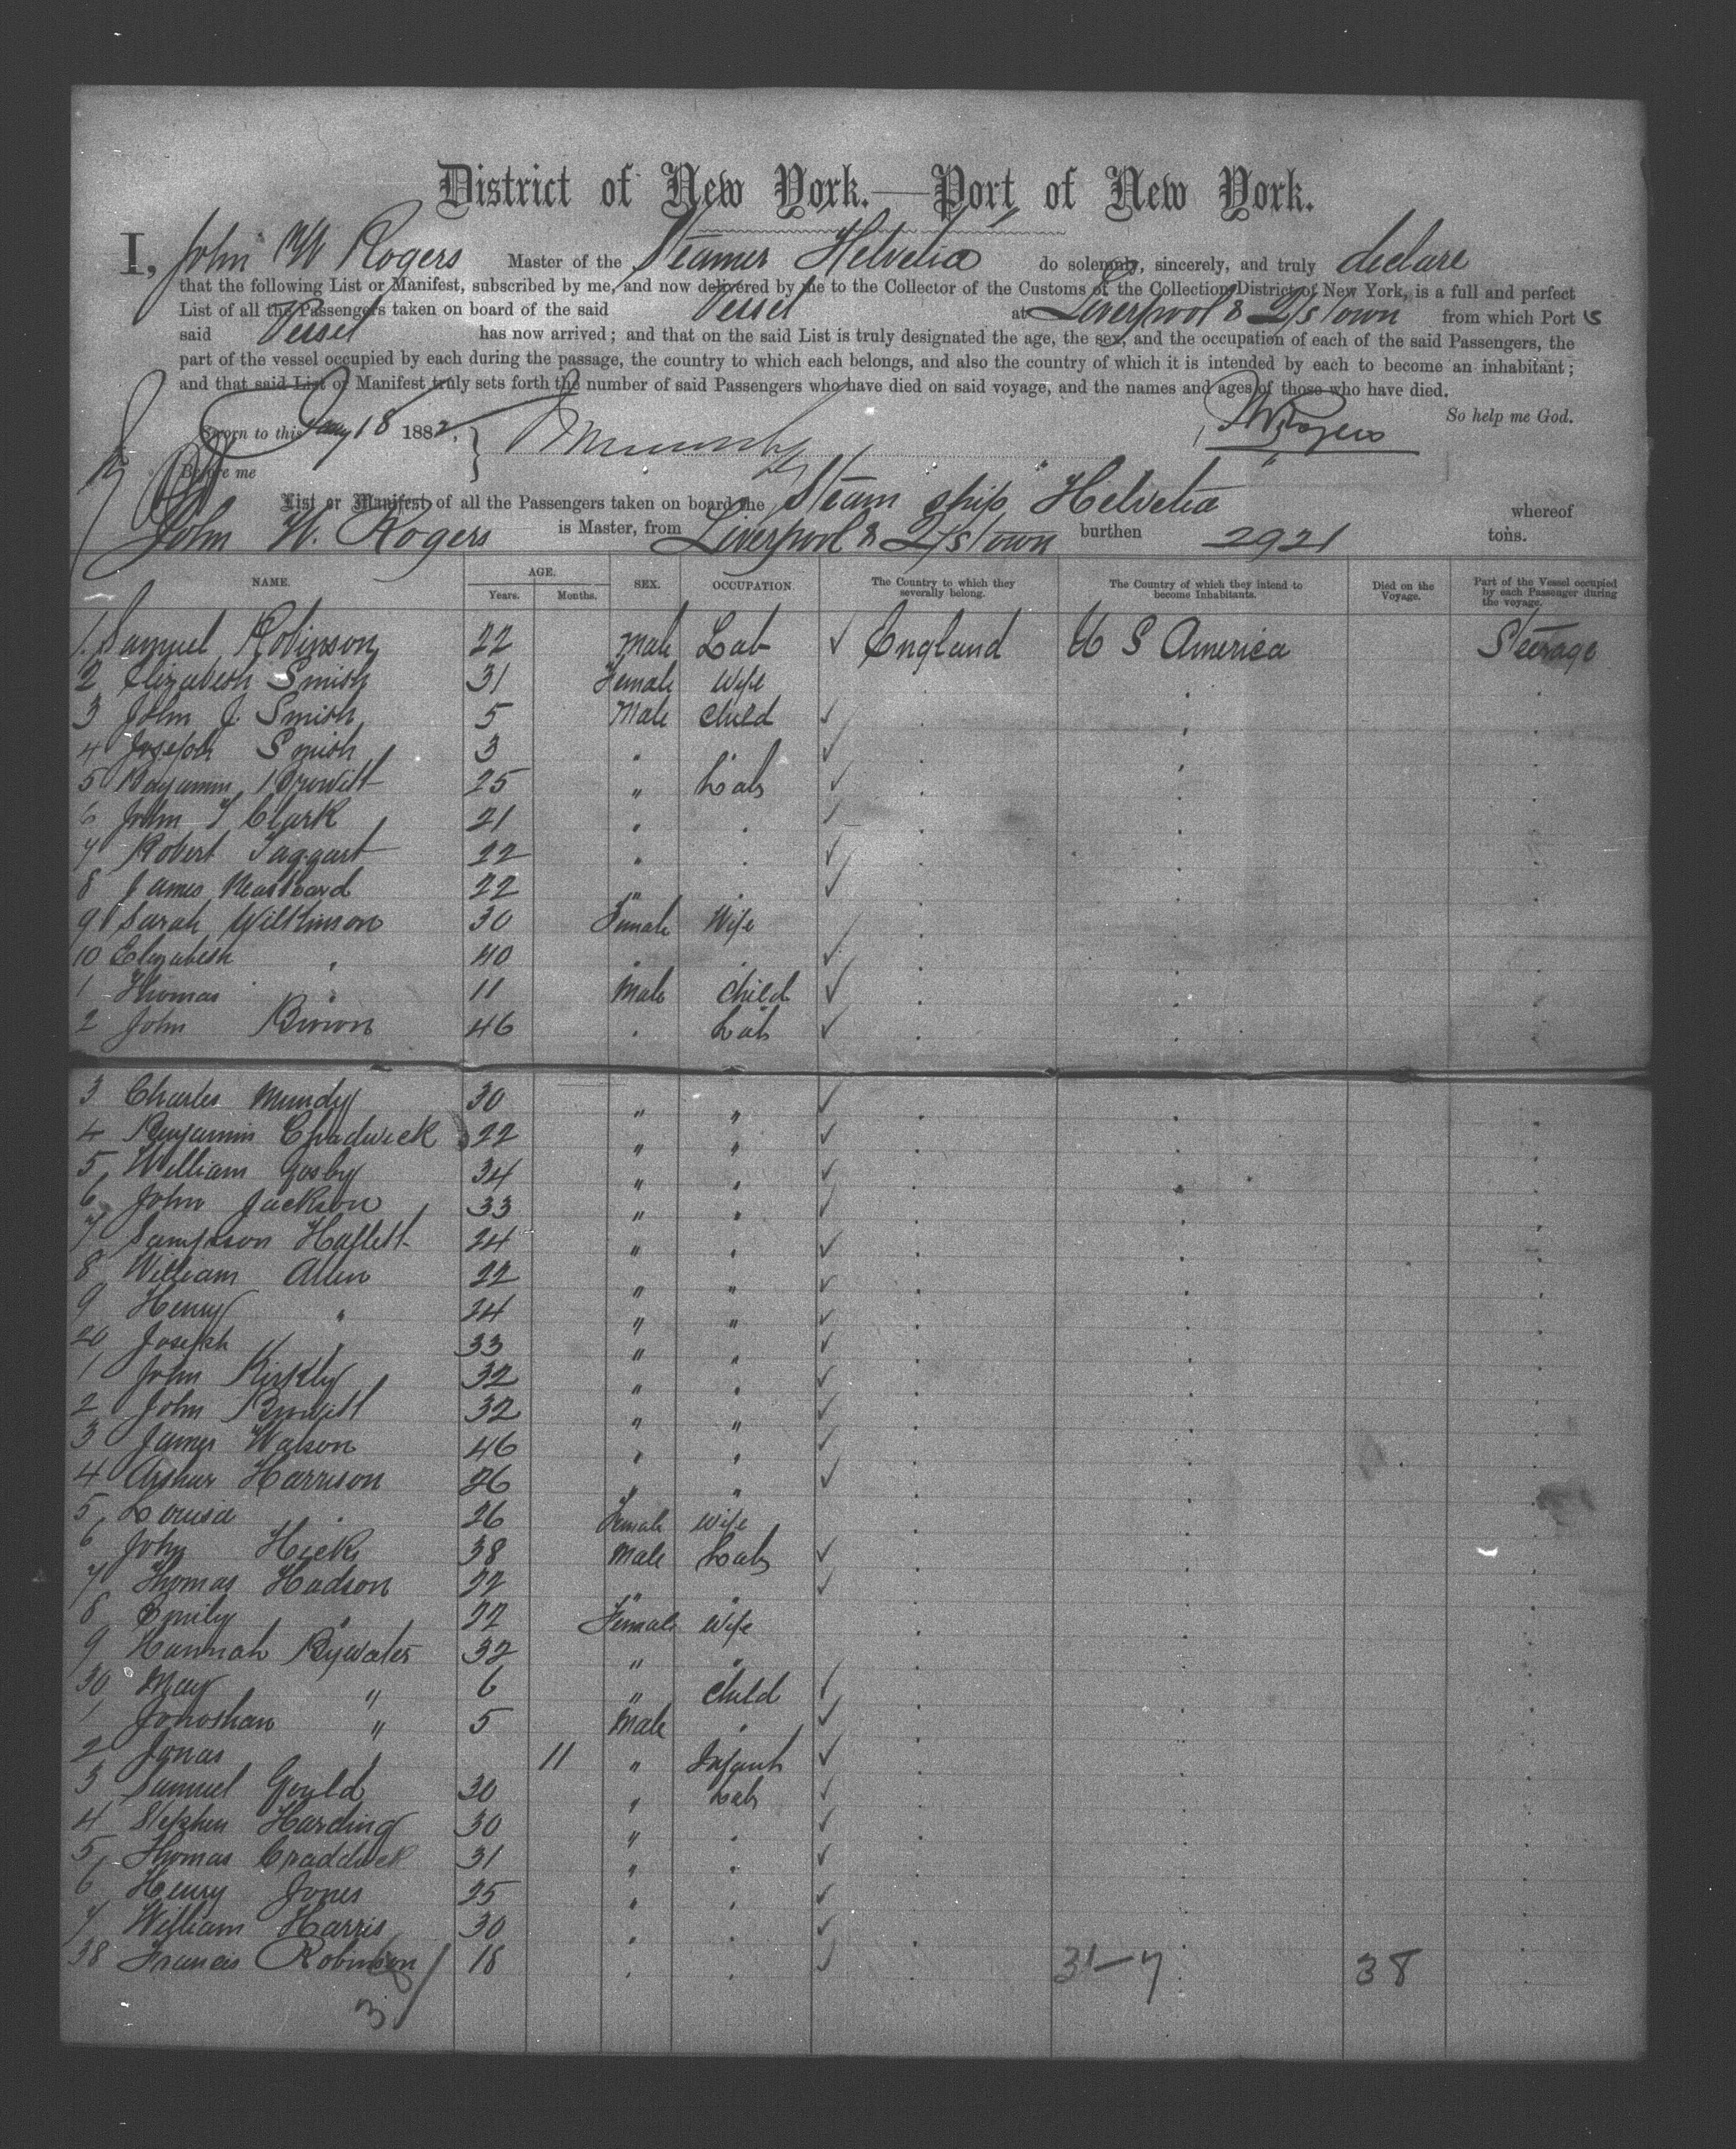 District of New York.—Port of New York.
I, John W Rogers Master of the Steamer Helvetia do solemnly, sincerely, and truly declare
that the following List or Manifest, subscribed by me, and now delivered by me to the Collector of the Customs of the Collection District of New York, is a full and perfect
List of all the Passengers taken on board of the said Vessel at Liverpool & Q/s Town from which Port
said Vessel has now arrived; and that on the said List is truly designated the age, the sex, and the occupation of each of the said Passengers, the
part of the vessel occupied by each during the passage, the country to which each belongs, and also the country of which it is intended by each to become an inhabitant;
and that said List or Manifest truly sets forth the number of said Passengers who have died on said voyage, and the names and ages of those who have died.
So help me God.
Sworn to this 18 1882. JWRogers
Before me
List or Manifest of all the Passengers taken on board the Steam ship Helvetia whereof
John W. Rogers is Master, from Liverpool & Q/s Town burthen 2921 tons.
NAME. AGE. Years. Months. SEX. OCCUPATION. The Country to which they severally belong. The Country of which they intend to become Inhabitants. Died on the Voyage. Part of the Vessel occupied by each Passenger during the voyage.
1. Samuel Robinson 22 Male Lab ✓ England U S America Steerage
2 Elizabeth Smith 31 Female Wife
3 John J. Smith 5 Male Child ✓
4 Joseph Smith 3 " " ✓
5 Benjamin 25 " Lab ✓
6 John T Clark 21 " " ✓
7 Robert Taggart 22 " " ✓
8 James 22 " " ✓
9 Sarah Wilkinson 30 Female Wife
10 Elizabeth " 40 " " ✓
1 Thomas " 11 Male Child ✓
2 John Brown 46 " Lab ✓
3 Charles Mundy 30 " " ✓
4 Benjamin Chadwick 22 " " ✓
5 William Gosby 34 " " ✓
6 John Jackson 33 " " ✓
7 Sampson Hallett 24 " " ✓
8 William Allen 22 " " ✓
9 Henry " 24 " " ✓
20 Joseph " 33 " " ✓
1 John 32 " " ✓
2 John 32 " " ✓
3 James Watson 46 " " ✓
4 Arthur Harrison 26 " " ✓
5 Louisa " 26 Female Wife
6 John Hicks 38 Male Lab ✓
7 Thomas Hudson 22 " " ✓
8 Emily " 22 Female Wife
9 Hannah Bywater 32 " "
30 May " 6 " Child ✓
1 Jonathan " 5 Male " ✓
2 Jonas " 11 " Infant ✓
3 Samuel Gould 30 " Lab ✓
4 Stephen Harding 30 " " ✓
5 Thomas Craddock 31 " " ✓
6 Henry Jones 25 " " ✓
7 William Harris 30 " " ✓
38 Francis Robinson 18 " " ✓ 31-7 38